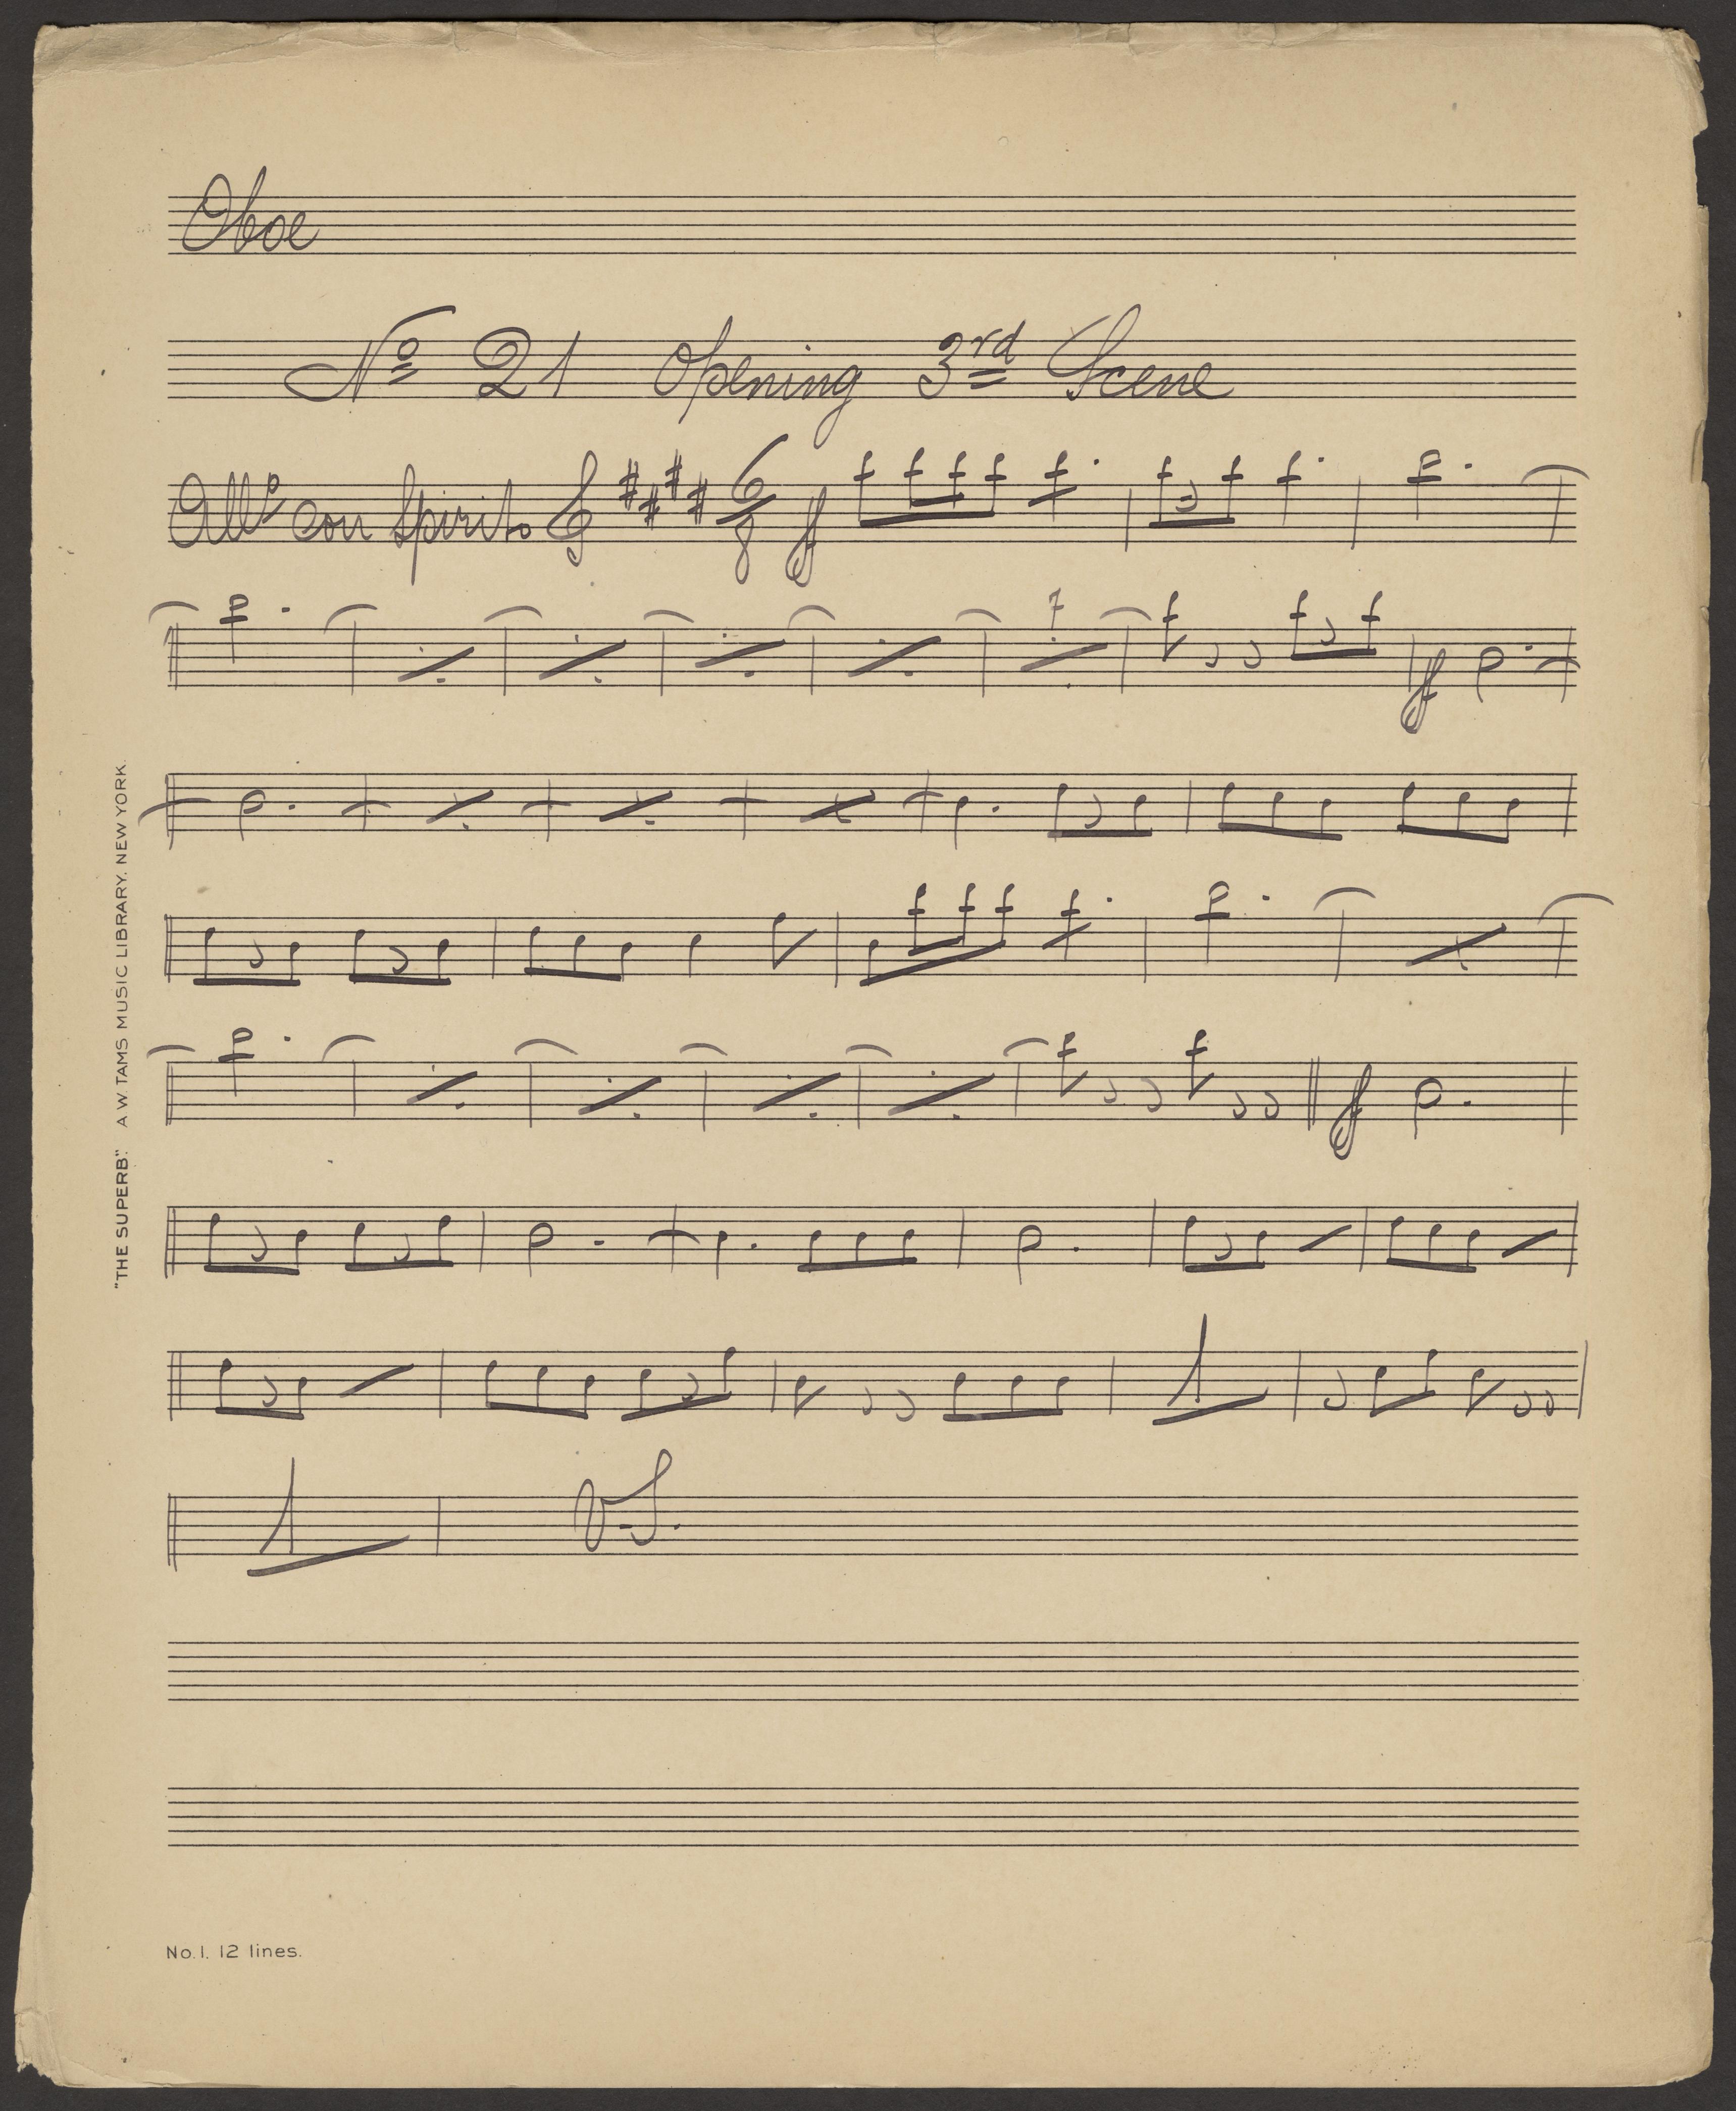 Oboe
No 21 Opening 3rd Scene
Allo con Spirito 6/8 ff
7
ff
ff
1
1
V.S.
"THE SUPERB". A.W. TAMS MUSIC LIBRARY. NEW YORK.
No. 1. 12 lines.